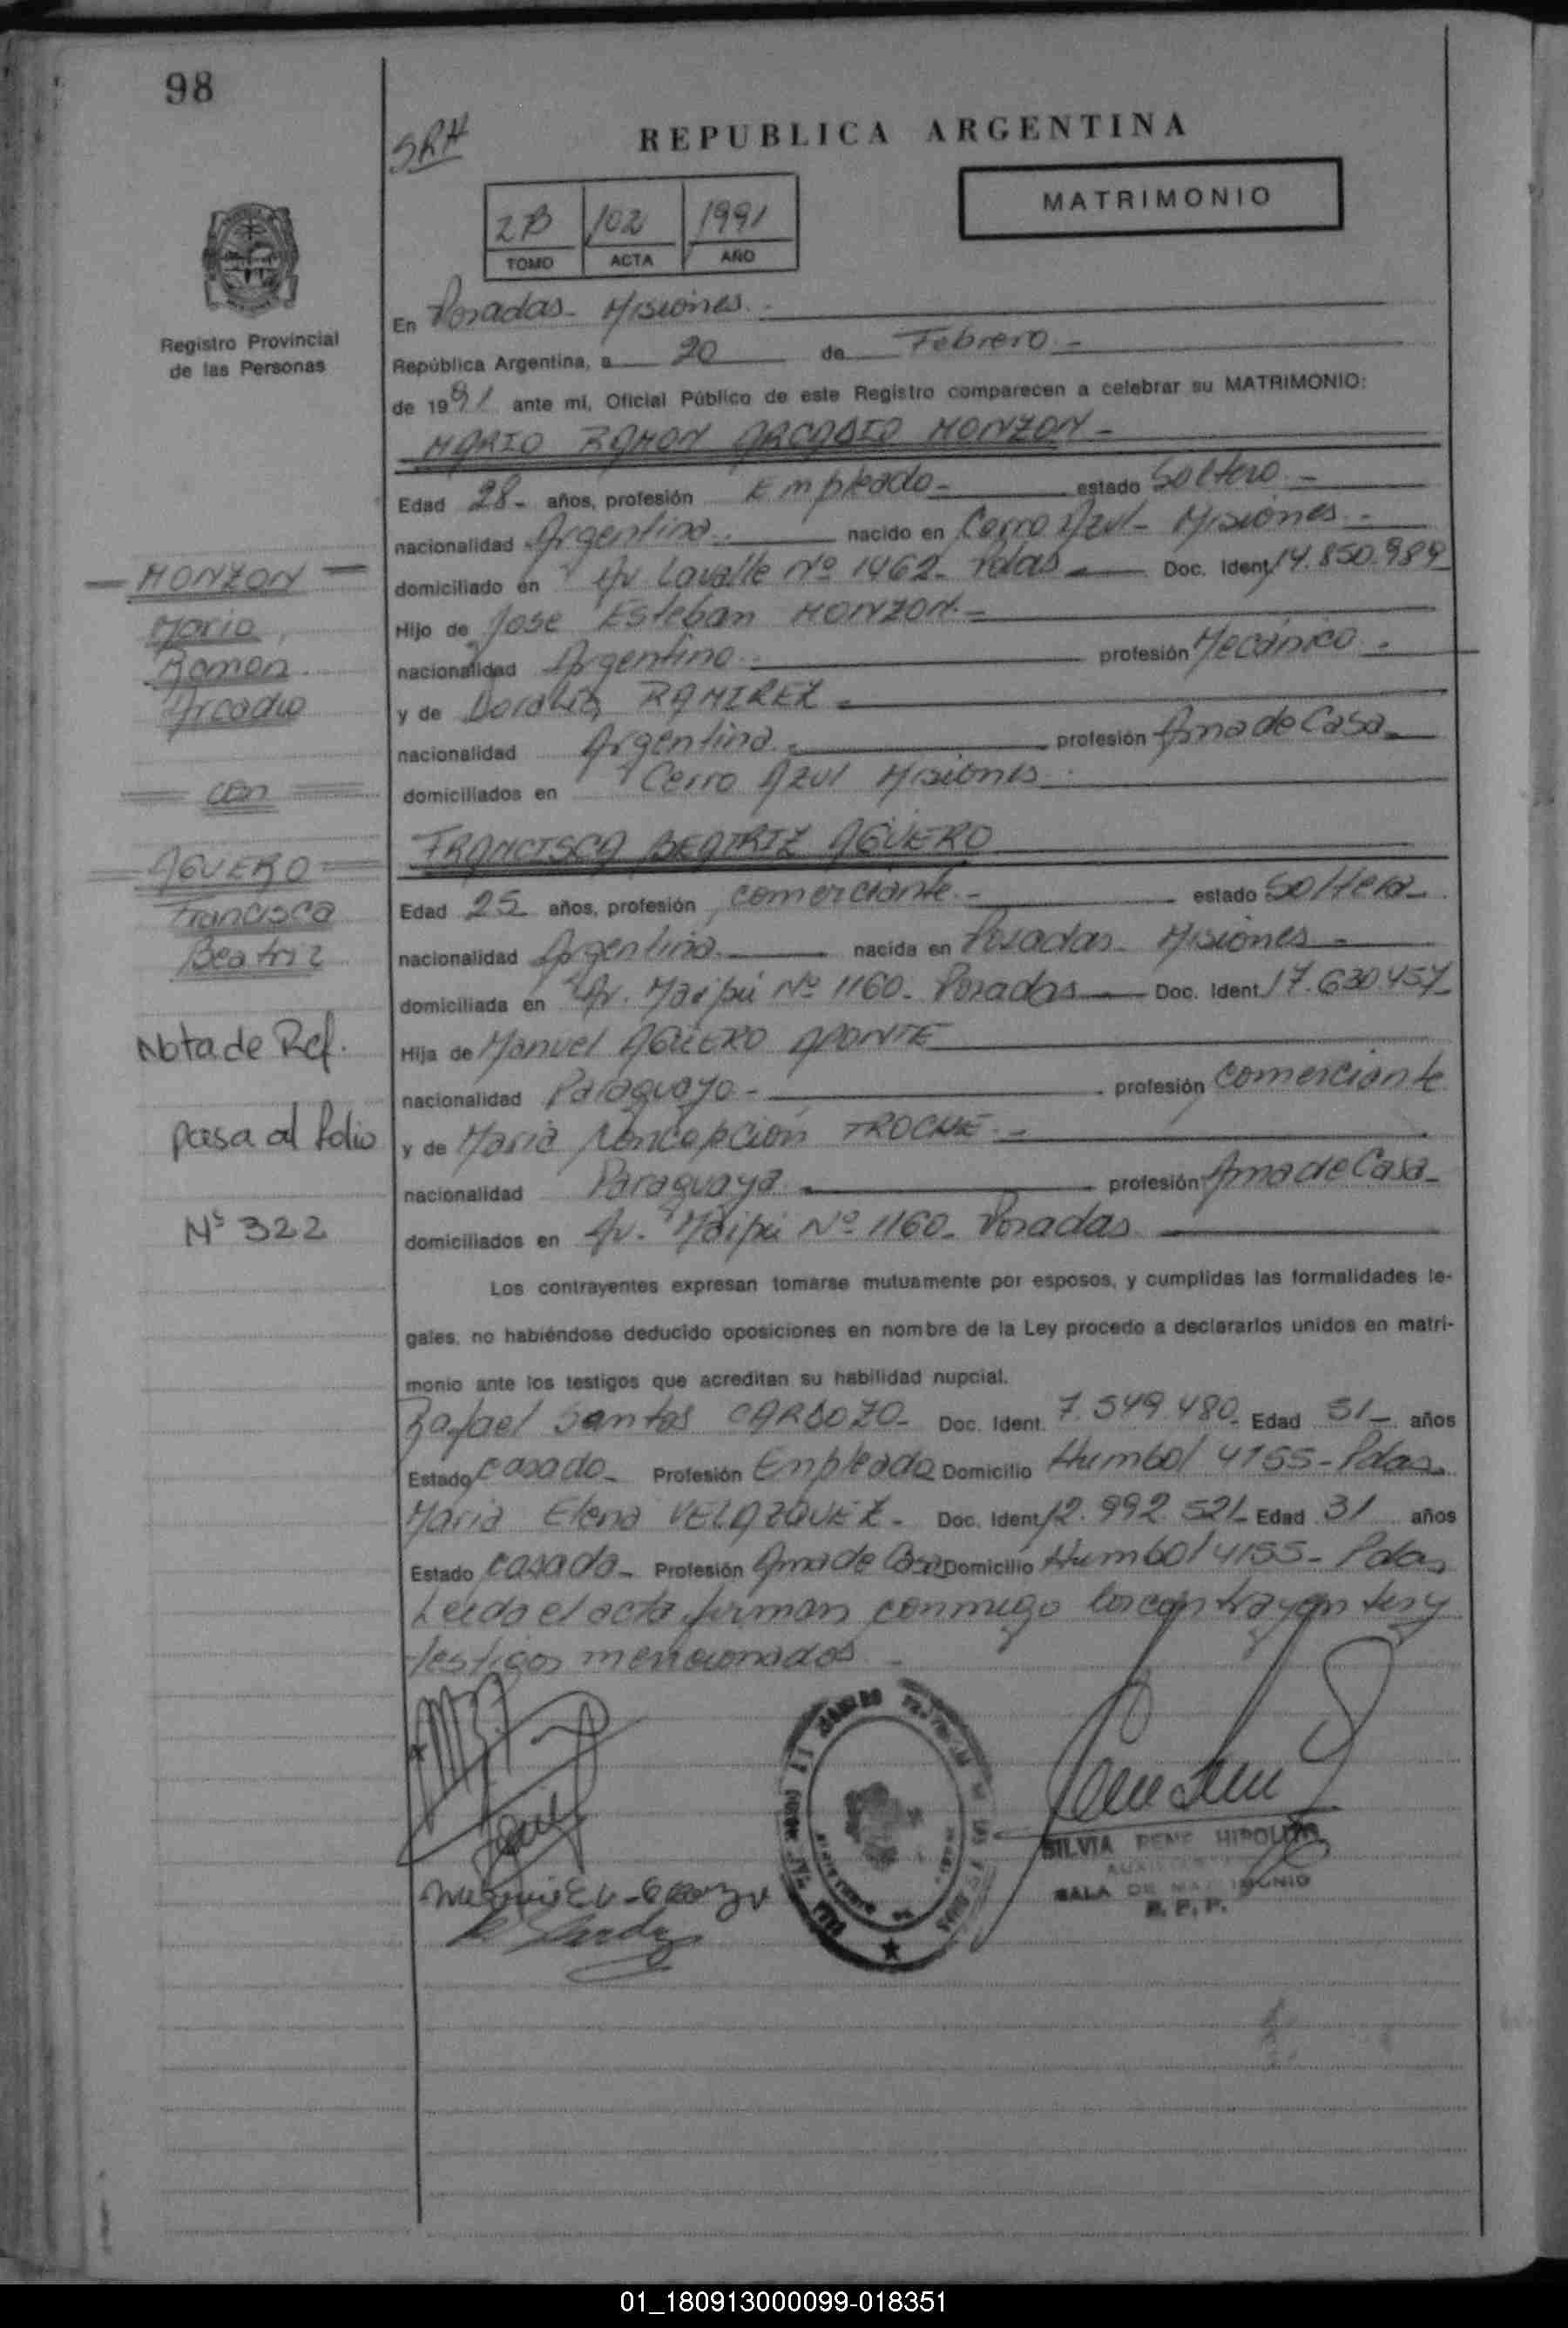 98
SRH
REPUBLICA ARGENTINA
MATRIMONIO
2B 102 1991
TOMO ACTA AÑO
Registro Provincial
de las Personas
En Posadas - Misiones.-
República Argentina, a 20 de Febrero -
de 1991 ante mí, Oficial Público de este Registro comparecen a celebrar su MATRIMONIO:
MARIO RAMON ARCADIO MONZON -
Edad 28 - años, profesión Empleado - estado Soltero -
nacionalidad Argentina - nacido en Cerro Azul - Misiones -
domiciliado en Av Lavalle Nº 1462 - Pdas Doc. Ident. 14.850.989
Hijo de Jose Esteban MONZON -
nacionalidad Argentino - profesión Mecánico -
y de Doralia RAMIREZ -
nacionalidad Argentina - profesión Ama de Casa -
domiciliados en Cerro Azul Misiones
MONZON
Mario
Ramon
Arcadio
con
AGUERO
Francisca
Beatriz
Nota de Ref.
pasa al folio
Nº 322
FRANCISCA BEATRIZ AGÜERO
Edad 25 años, profesión comerciante - estado Soltera -
nacionalidad Argentina nacida en Posadas - Misiones -
domiciliada en Av. Maipú Nº 1160 - Posadas Doc. Ident. 17.630.457
Hija de Manuel AGÜERO APONTE
nacionalidad Paraguayo - profesión comerciante
y de Maria Concepción TROCHE -
nacionalidad Paraguaya profesión Ama de Casa -
domiciliados en Av. Maipú Nº 1160 - Posadas
Los contrayentes expresan tomarse mutuamente por esposos, y cumplidas las formalidades le-
gales, no habiéndose deducido oposiciones en nombre de la Ley procedo a declararlos unidos en matri-
monio ante los testigos que acreditan su habilidad nupcial.
Rafael Santos CARDOZO - Doc. Ident. 7.549.480 - Edad 51 - años
Estado casado - Profesión Empleado Domicilio Humbol 4155 - Pdas
Maria Elena VELAZQUEZ - Doc. Ident. 12.992.521 - Edad 31 años
Estado casada - Profesión Ama de Casa Domicilio Humbol 4155 - Pdas
Leida el acta firman conmigo los contrayentes y
testigos mencionados -
SILVIA RENE HIPOLITO
SALA DE MATRIMONIO
R. P. P.
01_180913000099-018351